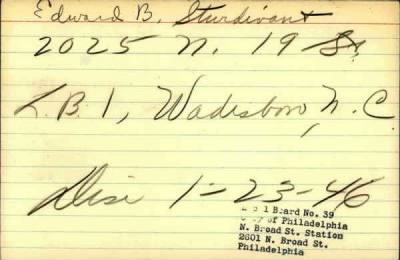 Edward B. Sturdivant
2025 N. 19 St.
L.B. 1, Wadesboro, N.C.
Disc 1-23-46
Local Board No. 39
City of Philadelphia
N. Broad St. Station
2601 N. Broad St.
Philadelphia